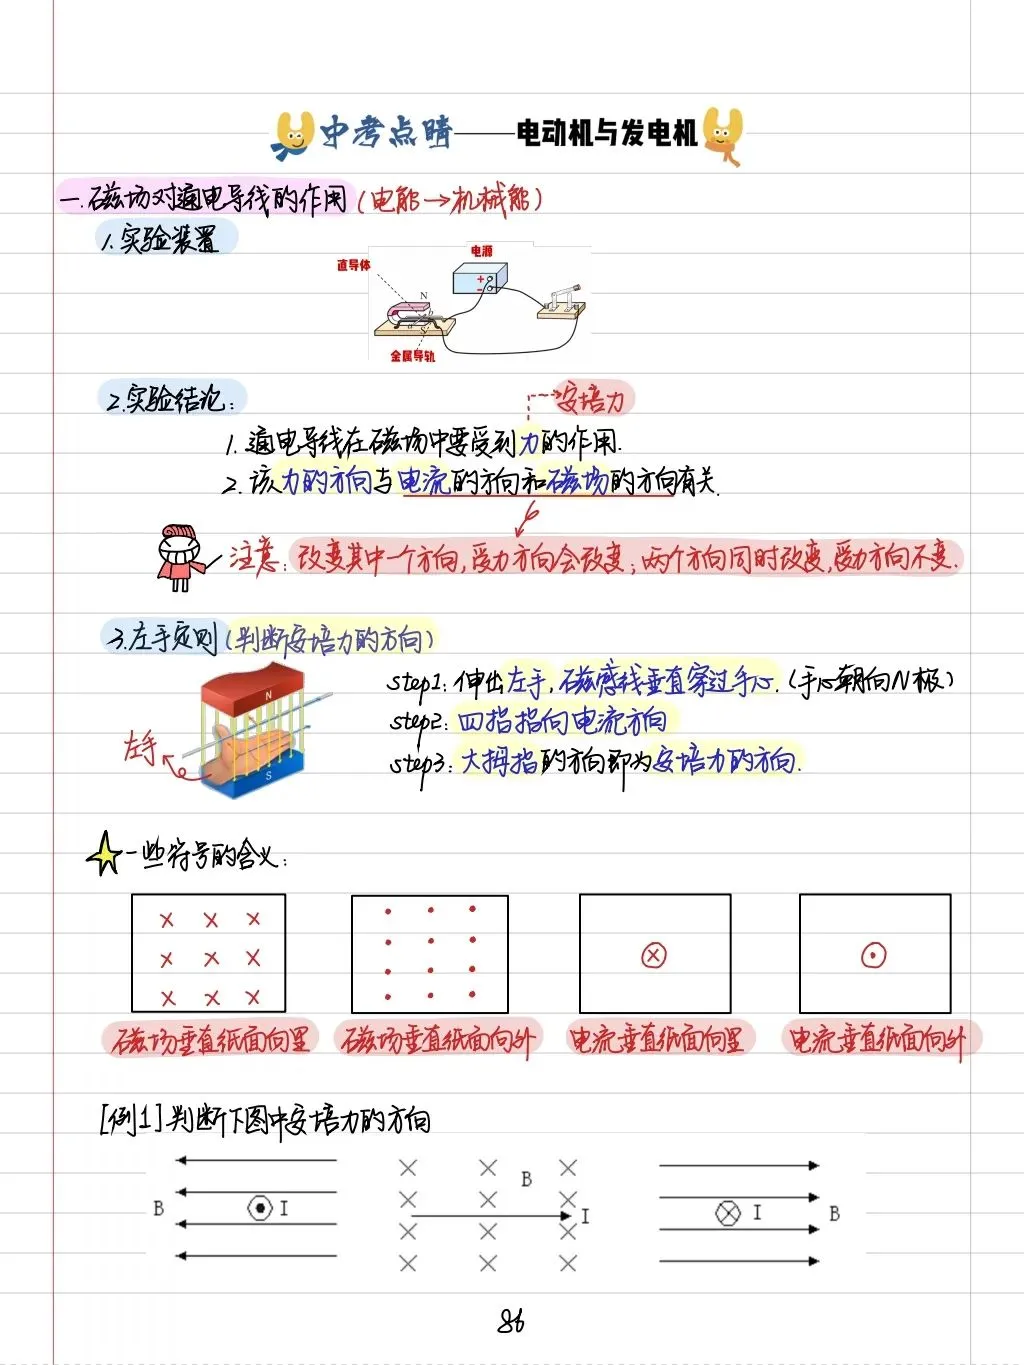 中考点睛——电动机与发电机
一.磁场对通电导线的作用(电能→机械能)
1.实验装置
电源
直导体
N
+
-
a
b
S
金属导轨
2.实验结论:
安培力
1.通电导线在磁场中要受到力的作用.
2.该力的方向与电流的方向和磁场的方向有关.
注意:改变其中一个方向,受力方向会改变;两个方向同时改变,受力方向不变.
3.左手定则(判断安培力的方向)
N
左手
S
step1:伸出左手,磁感线垂直穿过手心.(手心朝向N极)
step2:四指指向电流方向
step3:大拇指的方向即为安培力的方向.
一些符号的含义:
磁场垂直纸面向里
磁场垂直纸面向外
电流垂直纸面向里
电流垂直纸面向外
[例1]判断下图中安培力的方向
B I
B
I
I B
86